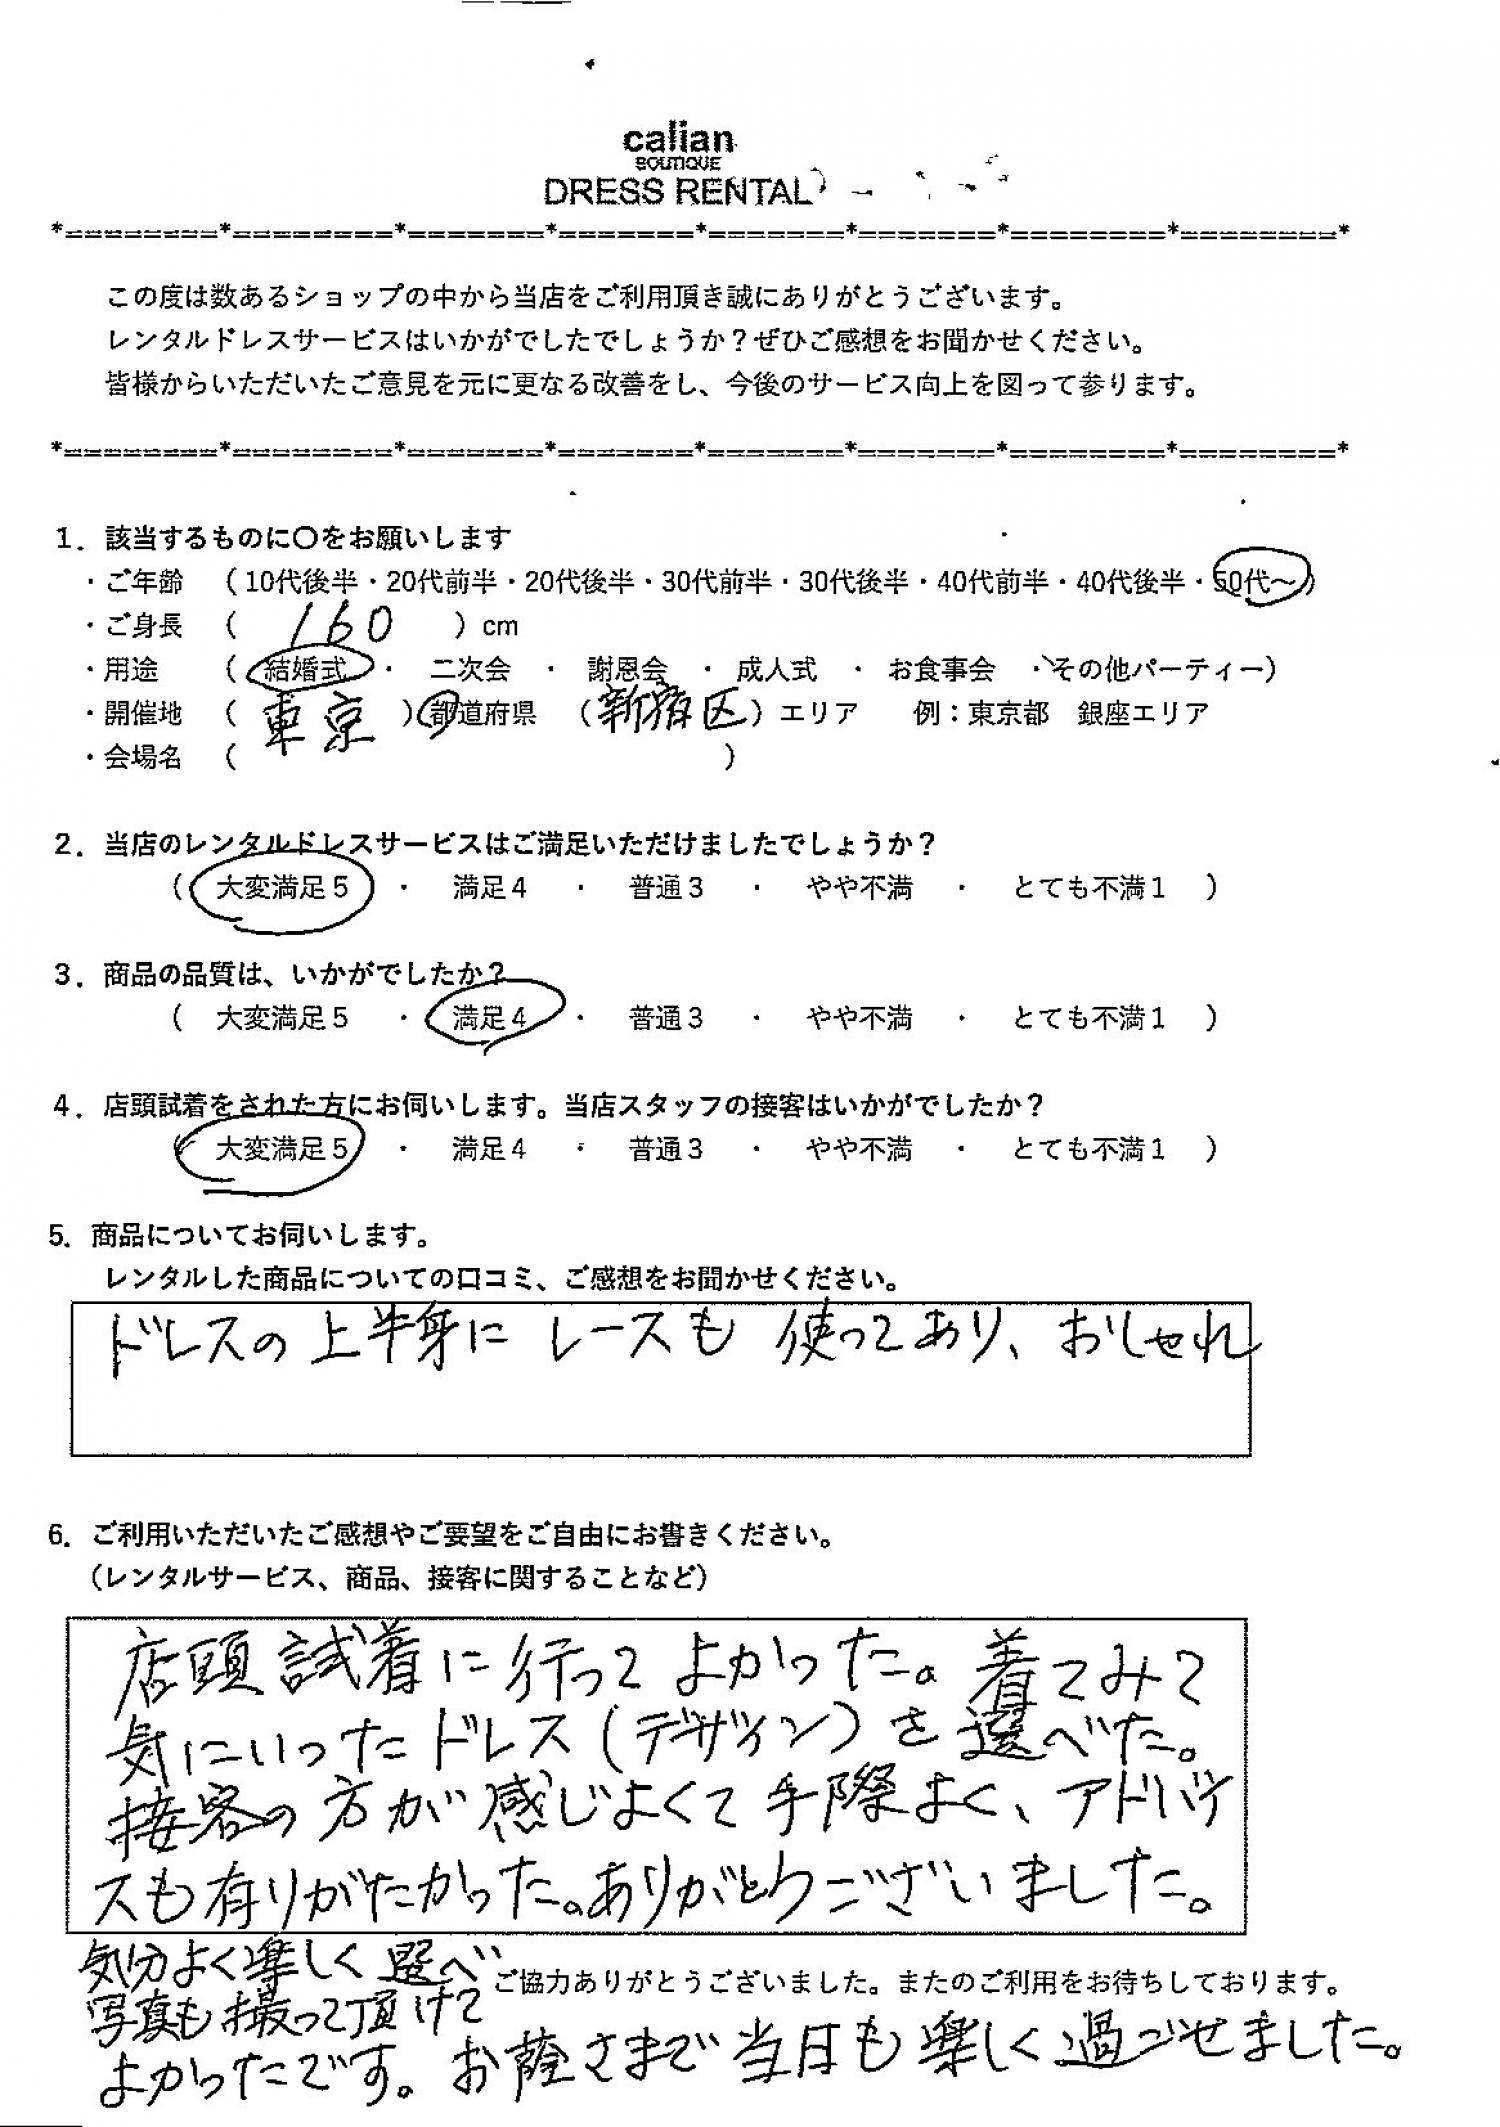 calian
BOUTIQUE
DRESS RENTAL
*========*========*=======*=======*=======*=======*========*========*
この度は数あるショップの中から当店をご利用頂き誠にありがとうございます。
レンタルドレスサービスはいかがでしたでしょうか？ぜひご感想をお聞かせください。
皆様からいただいたご意見を元に更なる改善をし、今後のサービス向上を図って参ります。
*========*========*=======*=======*=======*=======*========*========*
1．該当するものに〇をお願いします
・ご年齢　（10代後半・20代前半・20代後半・30代前半・30代後半・40代前半・40代後半・50代～）
・ご身長　（ 160 ）cm
・用途　（ 結婚式 ・ 二次会 ・ 謝恩会 ・ 成人式 ・ お食事会 ・その他パーティー）
・開催地　（ 東京 ）都道府県　（新宿区）エリア　例：東京都　銀座エリア
・会場名　（　　　）
2．当店のレンタルドレスサービスはご満足いただけましたでしょうか？
（ 大変満足5 ・ 満足4 ・ 普通3 ・ やや不満 ・ とても不満1 ）
3．商品の品質は、いかがでしたか？
（ 大変満足5 ・ 満足4 ・ 普通3 ・ やや不満 ・ とても不満1 ）
4．店頭試着をされた方にお伺いします。当店スタッフの接客はいかがでしたか？
（ 大変満足5 ・ 満足4 ・ 普通3 ・ やや不満 ・ とても不満1 ）
5．商品についてお伺いします。
レンタルした商品についての口コミ、ご感想をお聞かせください。
ドレスの上半身に レースも 使ってあり、おしゃれ
6．ご利用いただいたご感想やご要望をご自由にお書きください。
（レンタルサービス、商品、接客に関することなど）
店頭試着に行って よかった。着てみて
気にいったドレス（デザイン）を選べた。
接客の方が感じよくて手際よく、アドバイ
スも有りがたかった。ありがとうございました。
気分よく楽しく選べ
ご協力ありがとうございました。またのご利用をお待ちしております。
写真も撮って頂けて
よかったです。お蔭さまで当日も楽しく過ごせました。